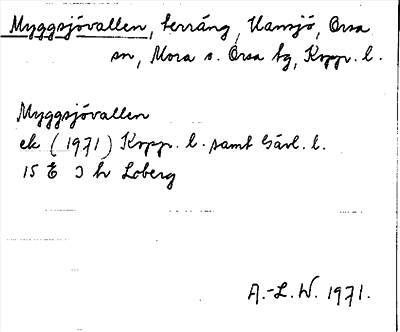 Myggsjövallen, terräng, Hansjö, Orsa
sn, Mora o. Orsa tg, Kopp. l.
Myggsjövallen
ek (1971) Kopp. l. samt Gävl. l.
15 E 3 h Loberg
A.-L. W. 1971.